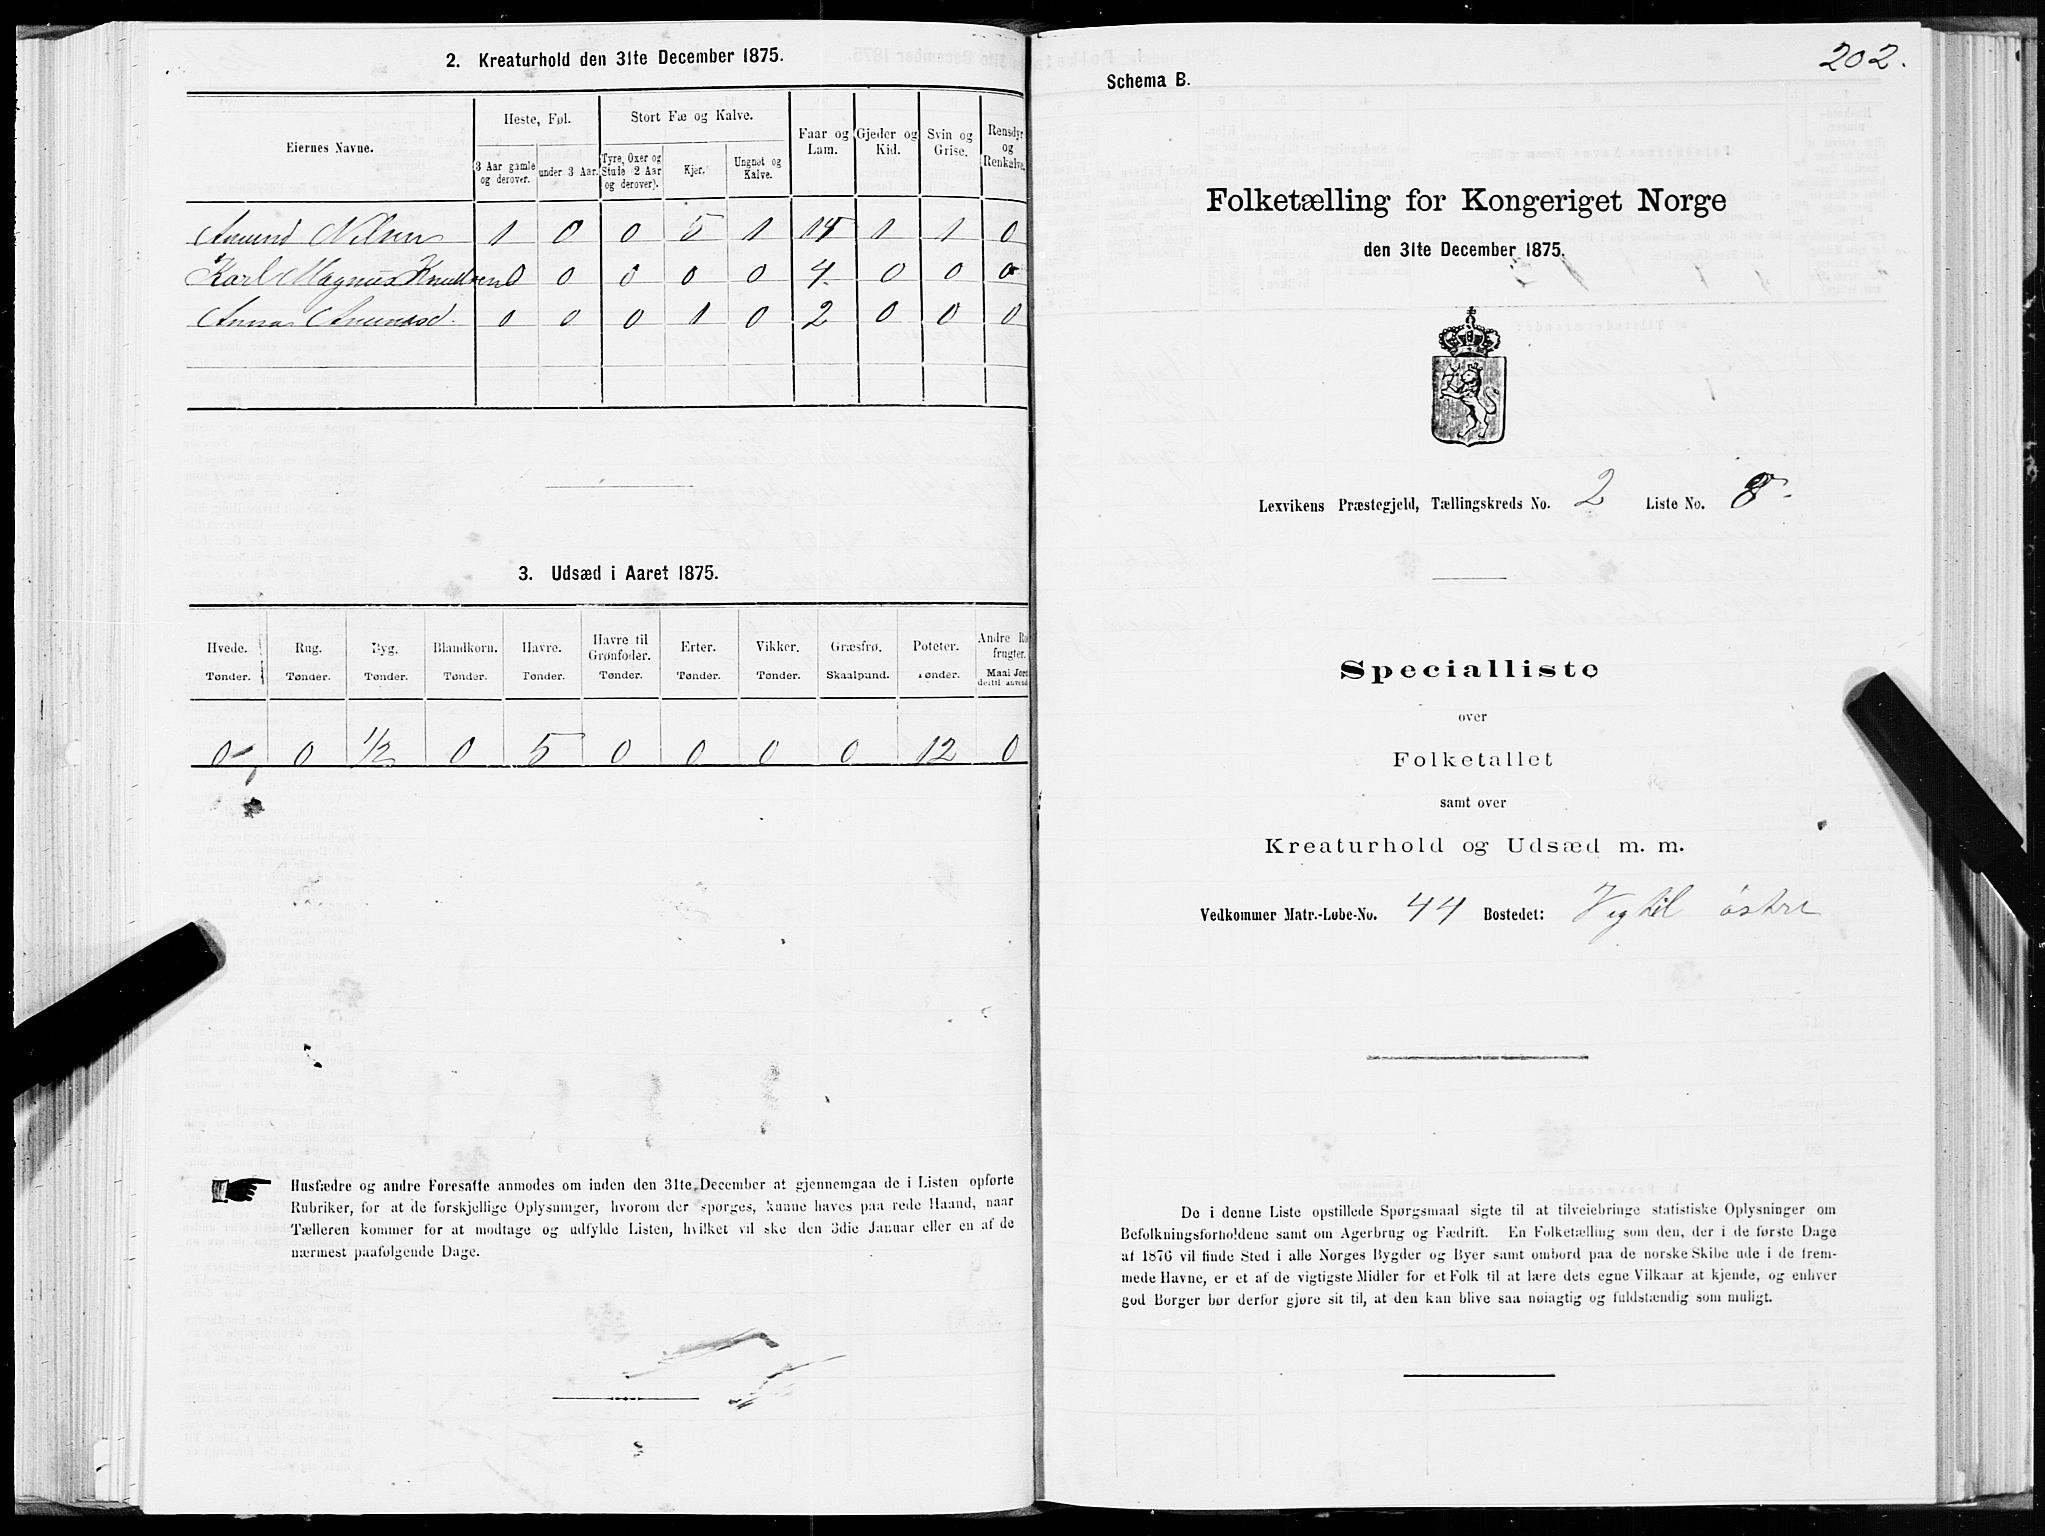 2. Kreaturhold den 31te December 1875.
Eiernes Navne.
Heste, Føl.
Stort Fæ og Kalve.
Faar og Lam.
Gjeder og Kid.
Svin og Grise.
Rensdyr og Renkalve.
3 Aar gamle og derover.
under 3 Aar.
Tyre, Oxer og Stude (2 Aar og derover).
Kjør.
Ungnøt og Kalve.
Amund Nilsen 1 0 0 5 1 14 1 1 0
Karl Magnus Knudsen 0 0 0 0 0 4 0 0 0
Anna Amundsd. 0 0 0 1 0 2 0 0 0
3. Udsæd i Aaret 1875.
Hvede. Rug. Byg. Blandkorn. Havre. Havre til Grønfoder. Erter. Vikker. Græsfrø. Poteter. Andre Ro frugter.
Tønder. Tønder. Tønder. Tønder. Tønder. Tønder. Tønder. Tønder. Skaalpund. Tønder. Maal Jord dertil anvend
0 0 1/2 0 5 0 0 0 0 12 0
Husfædre og andre Foresatte anmodes om inden den 31te December at gjennemgaa de i Listen opførte
Rubriker, for at de forskjellige Oplysninger, hvorom der spørges, kunne haves paa rede Haand, naar
Tælleren kommer for at modtage og udfylde Listen, hvilket vil ske den 3die Januar eller en af de
nærmest paafølgende Dage.
202.
Schema B.
Folketælling for Kongeriget Norge
den 31te December 1875.
Lexvikens Præstegjeld, Tællingskreds No. 2 Liste No. 8.
Specialliste
over
Folketallet
samt over
Kreaturhold og Udsæd m. m.
Vedkommer Matr.-Løbe-No. 44 Bostedet: Vigtil østre
De i denne Liste opstillede Spørgsmaal sigte til at tilveiebringe statistiske Oplysninger om
Befolkningsforholdene samt om Agerbrug og Fædrift. En Folketælling som den, der i de første Dage
af 1876 vil finde Sted i alle Norges Bygder og Byer samt ombord paa de norske Skibe ude i de frem-
mede Havne, er et af de vigtigste Midler for et Folk til at lære dets egne Vilkaar at kjende, og enhver
god Borger bør derfor gjøre sit til, at den kan blive saa nøiagtig og fuldstændig som muligt.